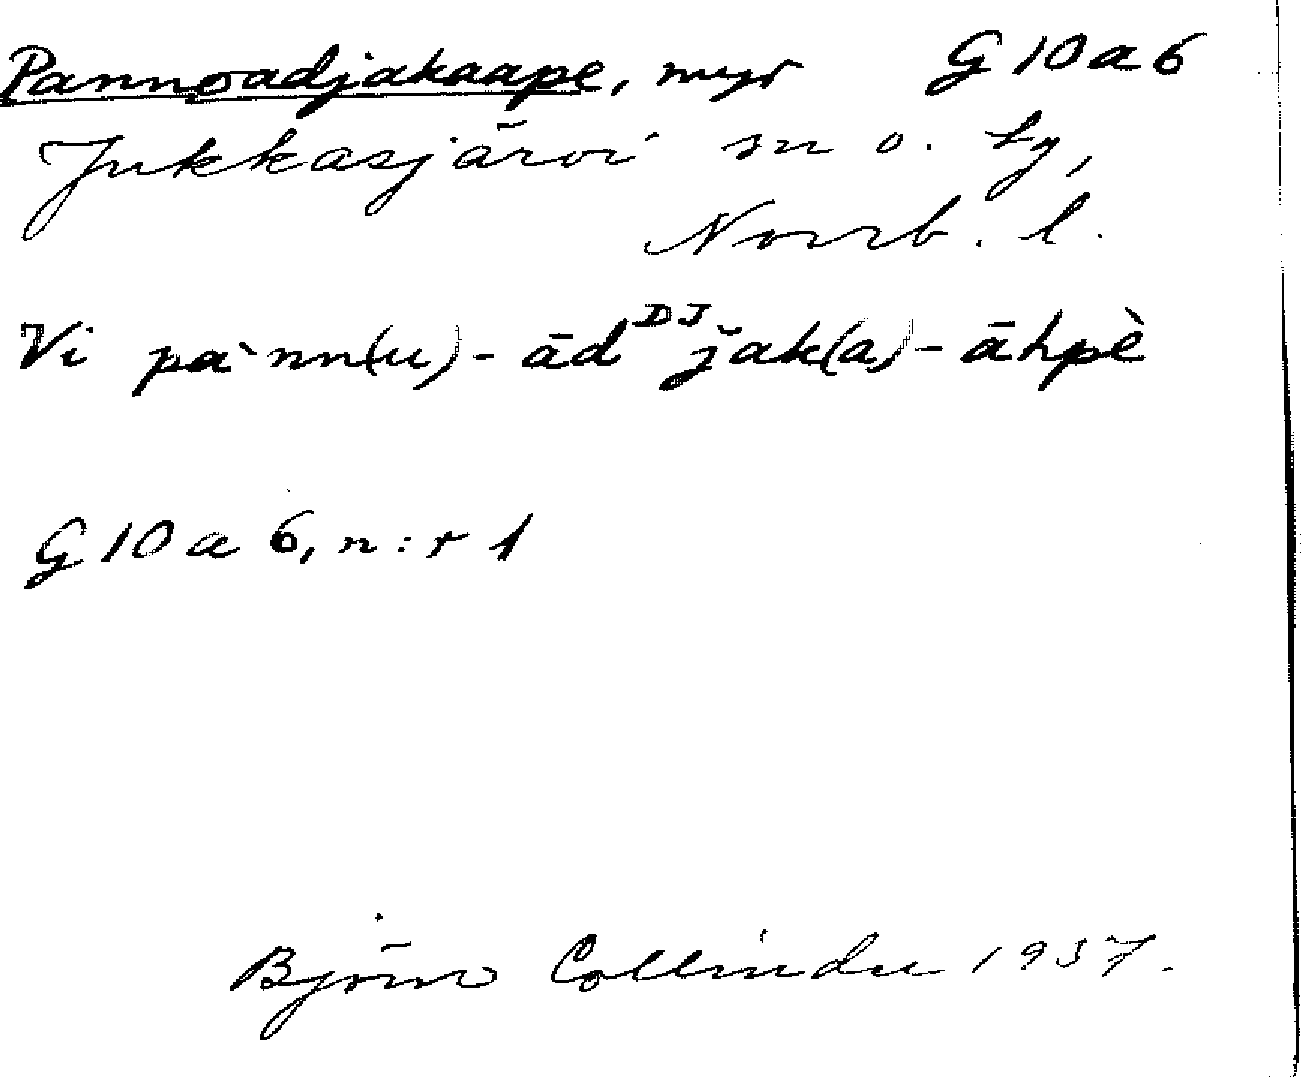 Pannoadjakaape, myr G 10 a 6
Jukkasjärvi sn o. tg,
Norrb. l.
Vi pa`nn(u)-ād ᴰᴶ ǰak(a)-āhpè
G 10 a 6, n:r 1
Björn Collinder 1937.